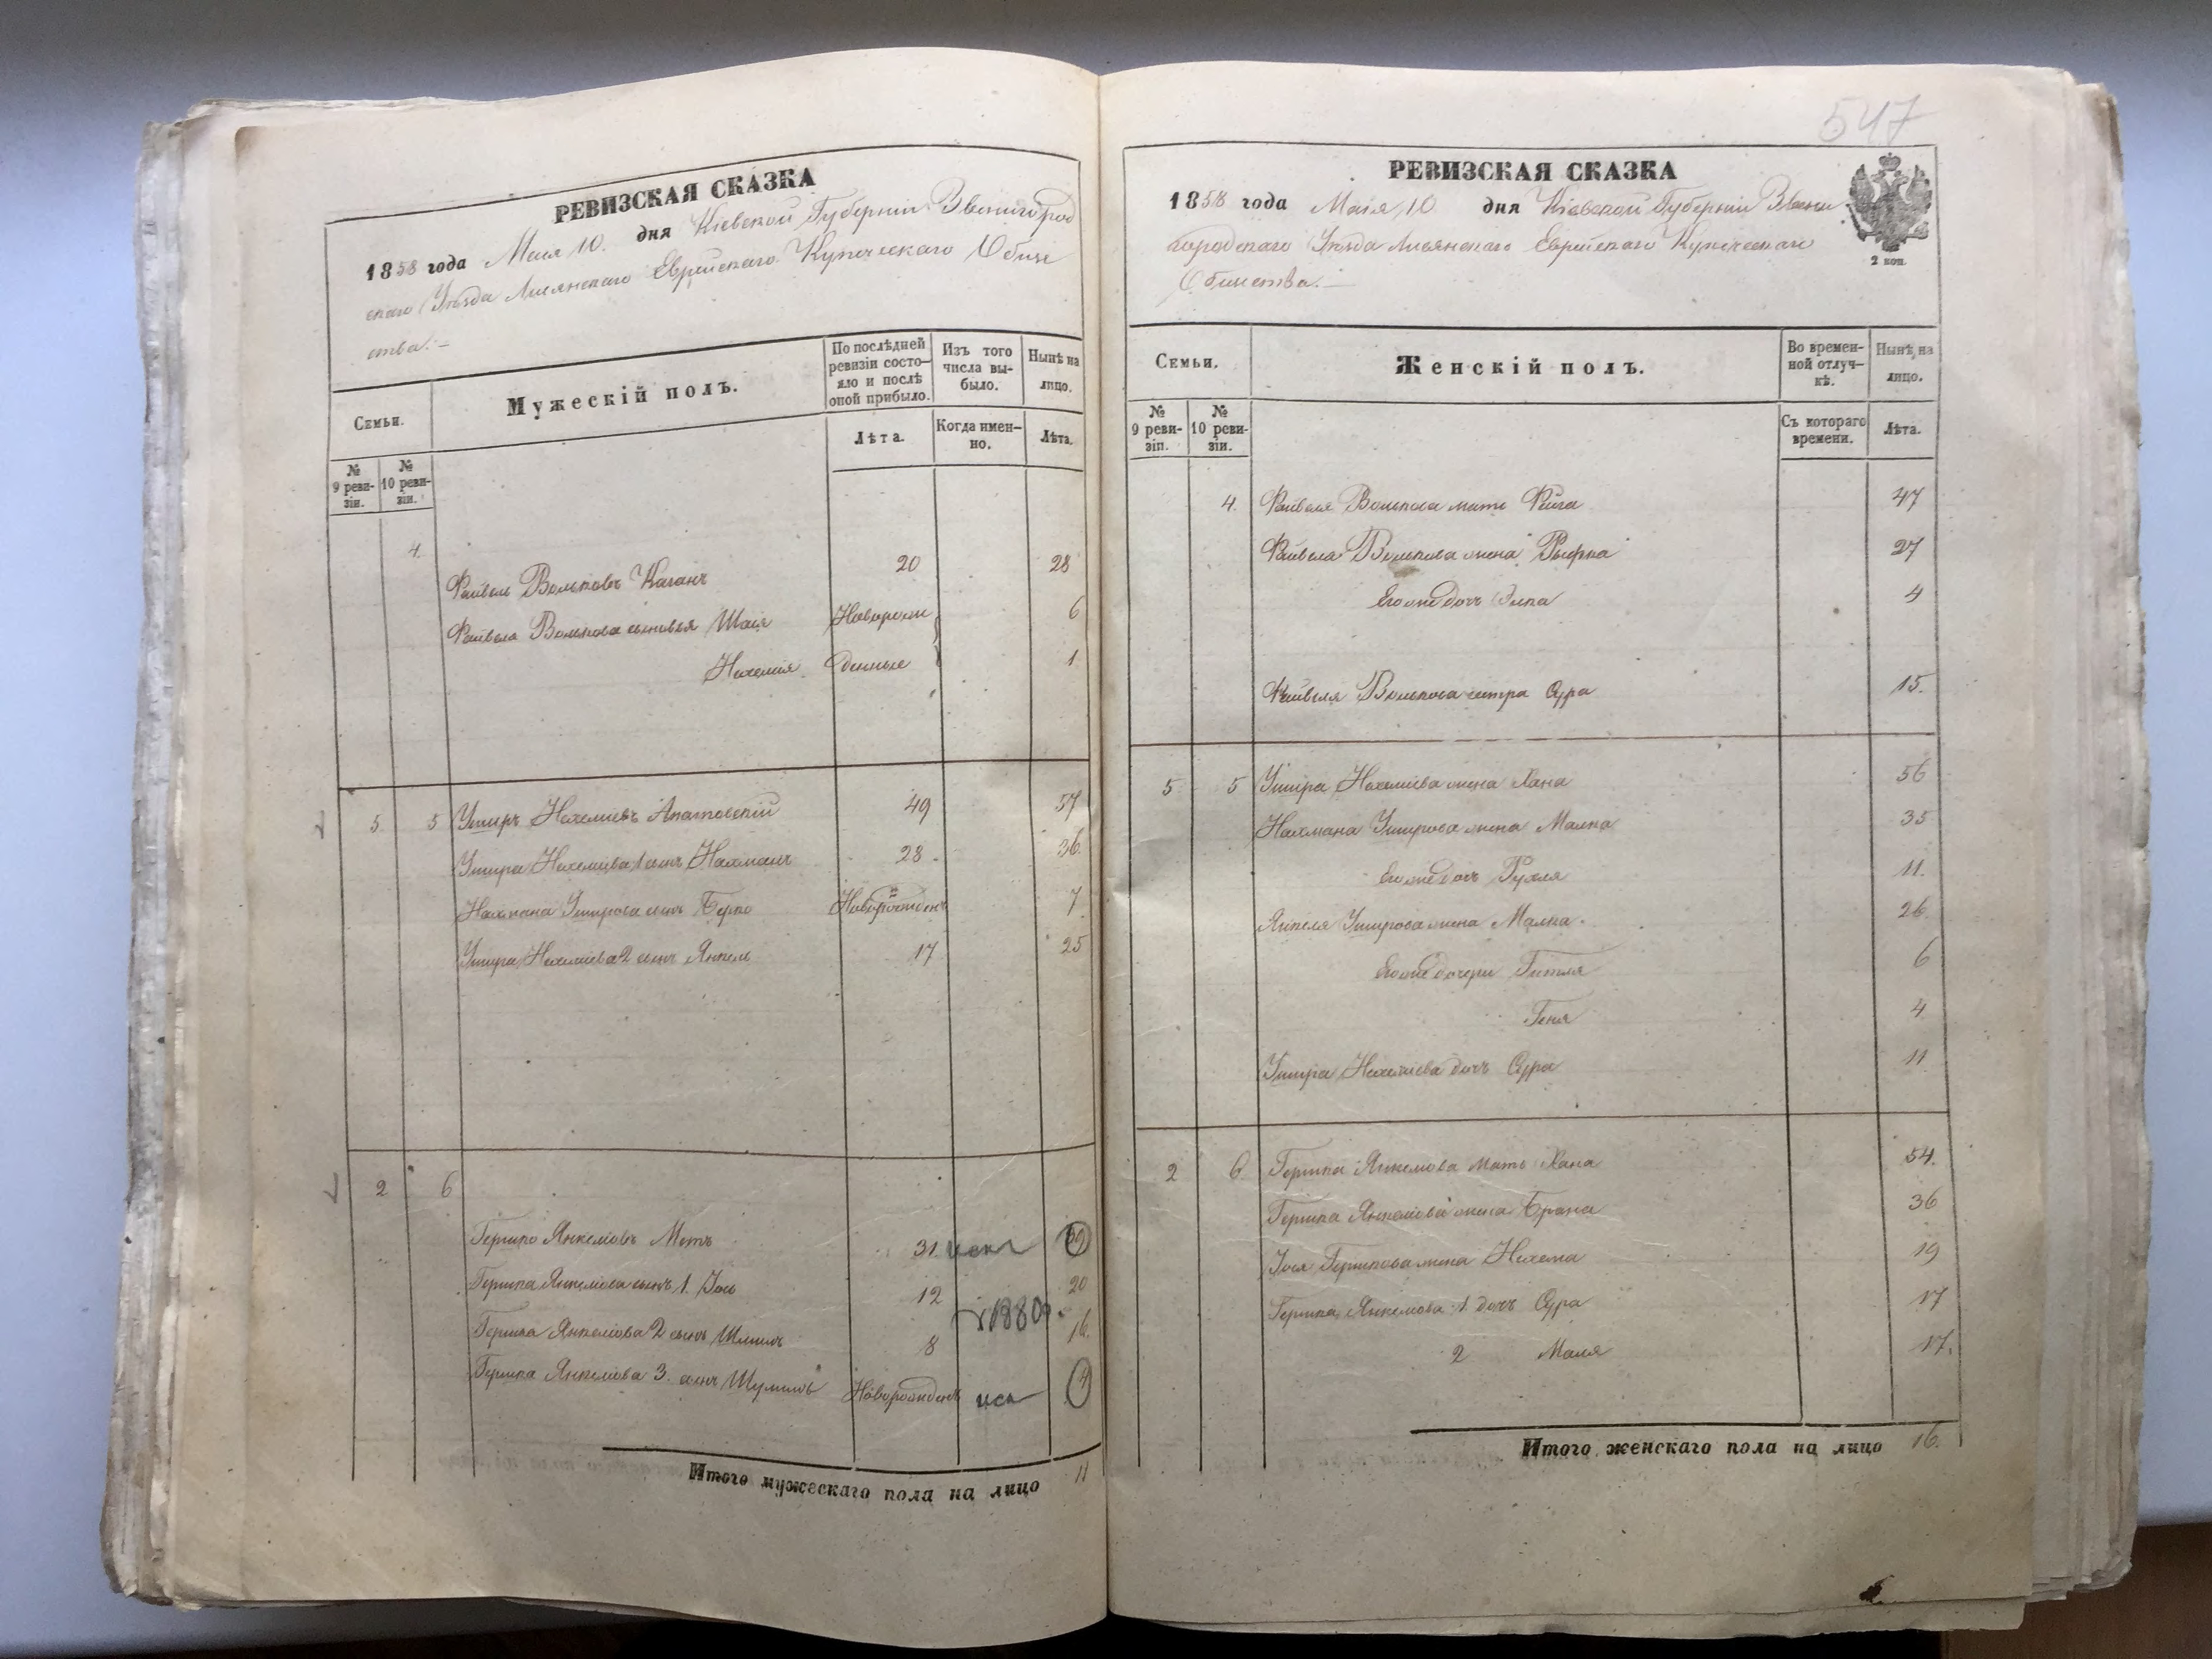 РЕВИЗСКАЯ СКАЗКА
1858 года Маія 10. дня Кіевской Губерніи Звенигород
скаго Уѣзда Лисянскаго Еврейскаго Купеческаго Обще
ства.-
Семьи.
Мужескій полъ.
По послѣдней ревизіи состояло и послѣ оной прибыло.
Изъ того числа выбыло.
Нынѣ на лицо.
№ 9 ревизіи.
№ 10 ревизіи.
Лѣта.
Когда именно.
Лѣта.
4. Файвель Вольковъ Каганъ 20 28
Файвеля Волькова сыновья Шаія Новорож 6
Нехемія денные 1
5 5 Ушеръ Нехеміевъ Апатовскій 49 57
Ушера Нехеміева 1 сынъ Нахманъ 28 36
Нахмана Ушерова сынъ Берко Новорожден 7
Ушера Нехеміева 2 сынъ Янкель 17 25
2 6
Гершко Янкелювъ Мотъ 31 искл
Гершка Янкелюва сынъ 1. Іось 12 20
Гершка Янкелюва 2 сынъ Шмиль 8 1880 16
Гершка Янкелюва 3. сынъ Новорожденъ иск 4
Итого мужескаго пола на лицо 11
547
РЕВИЗСКАЯ СКАЗКА
1858 года Маія 10 дня Кіевской Губерніи Звени
городскаго Уѣзда Лисянскаго Еврейскаго Купеческаго
Общества.-
2 коп.
Семьи.
Женскій полъ.
Во временной отлучкѣ.
Нынѣ на лицо.
№ 9 ревизіи.
№ 10 ревизіи.
Съ котораго времени.
Лѣта.
4. Файвеля Волькова мать Фейга 47
Файвеля Волькова жена Рыфка 27
Его же дочь Элка 4
Файвеля Волькова сестра Сура 15.
5 5 Ушера Нехеміева жена Хана 56
Нахмана Ушерова жена Малка 35
Его же дочь Рухля 11.
Янкеля Ушерова жена Малка. 26
Его же дочери Гитля 6
Геня 4
Ушера Нехеміева дочь Сура 11
2 6 Гершка Янкелюва мать Хана 54.
Гершка Янкелюва жена Брана 36
Іося Гершкова жена Нехама 19
Гершка Янкелюва 1. дочь Сура 17
2 Маля 17.
Итого женскаго пола на лицо 16.